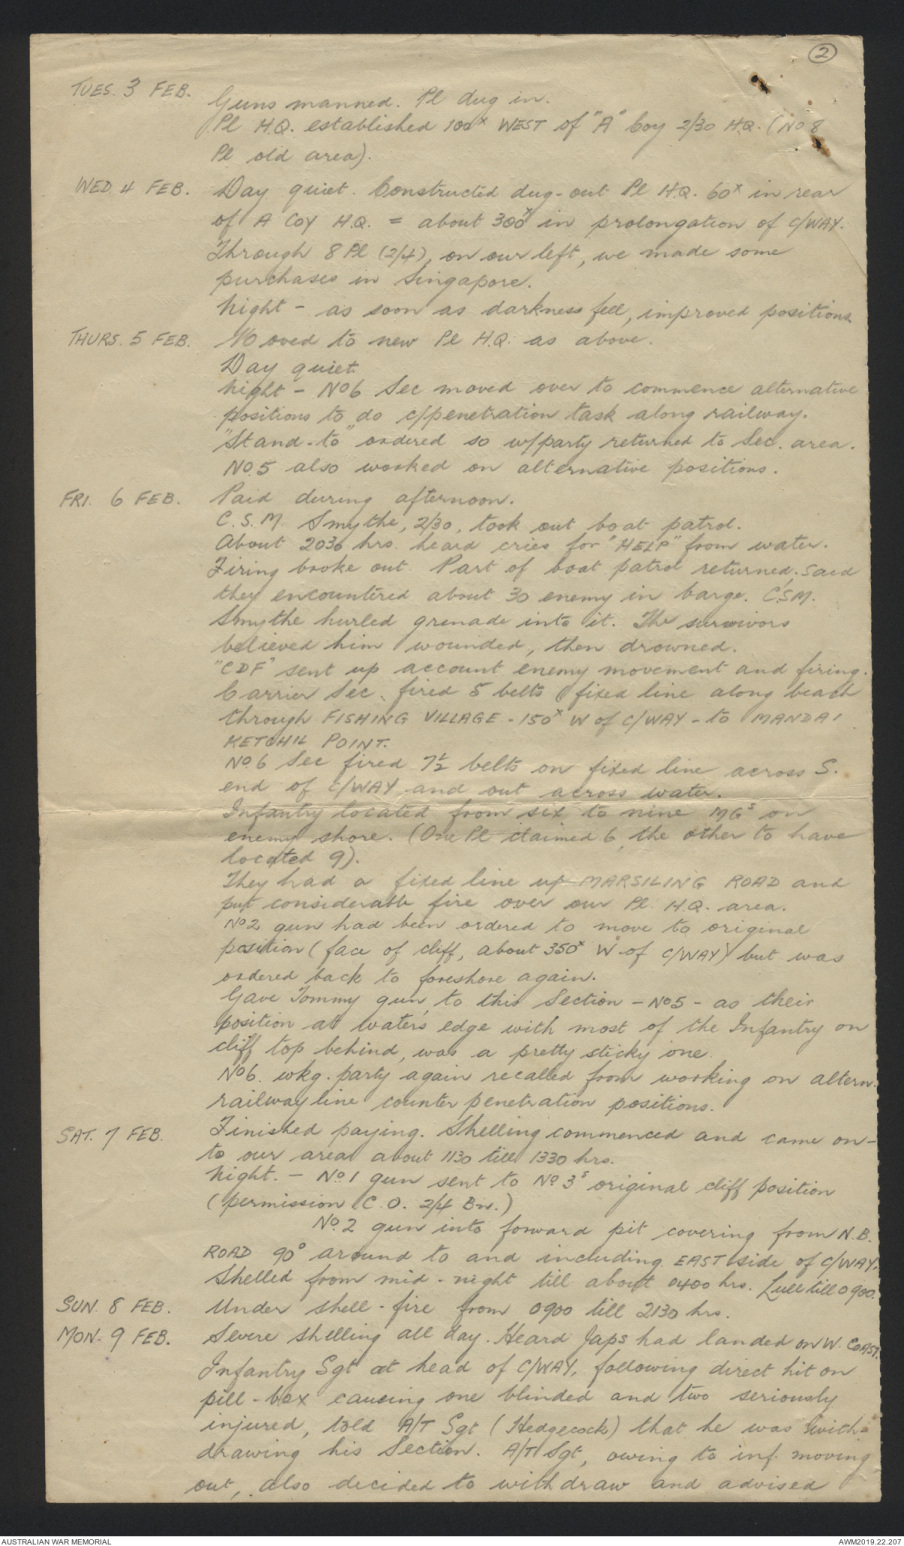 2
TUES. 3 FEB. Guns manned. Pl dug in.
Pl H.Q. established 100x WEST of "A" Coy 2/30 H.Q. (No 8
Pl old area).
WED 4 FEB. Day quiet. Constructed dug-out Pl H.Q. 60x in rear
of A Coy H.Q. = about 300x in prolongation of C/WAY.
Through 8 Pl (2/4), on our left, we made some
purchases in Singapore.
Night - as soon as darkness fell, improved positions
THURS. 5 FEB. Moved to new Pl H.Q. as above.
Day quiet
Night - No 6 Sec moved over to commence alternative
positions to do c/penetration task along railway.
"Stand-to" ordered so w/party returned to Sec. area.
No 5 also worked on alternative positions.
FRI. 6 FEB. Paid during afternoon.
C.S.M. Smythe, 2/30, took out boat patrol.
About 2030 hrs. heard cries for "HELP" from water.
Firing broke out. Part of boat patrol returned, said
they encountered about 30 enemy in barge. C.S.M.
Smythe hurled grenade into it. The survivors
believed him wounded, then drowned.
"CDF" sent up account enemy movement and firing.
Carrier Sec. fired 5 belts (fixed line along beach
through FISHING VILLAGE - 150x W of C/WAY - to MANDAI
KETCHIL POINT.
No 6 Sec fired 7½ belts on fixed line across S.
end of C/WAY and out across water.
Infantry located from six to nine MGs on
enemy shore. (One Pl claimed 6, the other to have
located 9).
They had a fixed line up MARSILING ROAD and
put considerable fire over our Pl. H.Q. area.
No 2 gun had been ordered to move to original
position (face of cliff, about 350x W of C/WAY) but was
ordered back to foreshore again.
Gave Tommy gun to this Section - No 5 - as their
position at water's edge with most of the Infantry on
cliff top behind, was a pretty sticky one.
No 6. wkg. party again recalled from working on altern.
railway line counter penetration positions.
SAT. 7 FEB. Finished paying. Shelling commenced and came on-
to our area about 1130 till 1330 hrs.
Night. - No 1 gun sent to No 3's original cliff position
(permission C.O. 2/4 Bn.)
No 2 gun into forward pit covering from N.B.
ROAD 90° around to and including EAST side of C/WAY.
Shelled from mid-night till about 0400 hrs. Lull till 0900.
SUN. 8 FEB. Under shell-fire from 0900 till 2130 hrs.
MON. 9 FEB. Severe shelling all day. Heard Japs had landed on W. COAST.
Infantry Sgt at head of C/WAY, following direct hit on
pill-box causing one blinded and two seriously
injured, told A/T Sgt (Hedgecock) that he was with-
drawing his Section. A/T Sgt, owing to inf moving
out, also decided to withdraw and advised
AUSTRALIAN WAR MEMORIAL
AWM2019.22.207